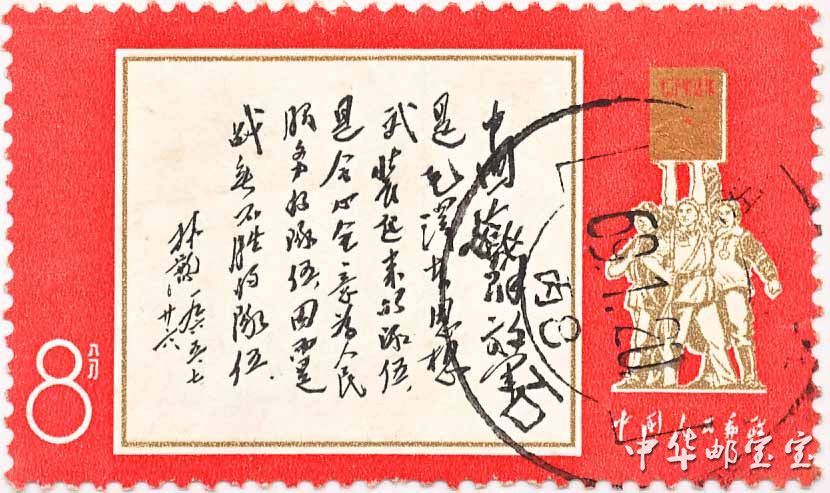 中国人民解放军
是毛泽东思想
武装起来的队伍
是全心全意为人民
服务的队伍因而是
战无不胜的队伍.
林彪 一九六五 七、廿六
8分
69.1.20
中国人民邮政
中华邮